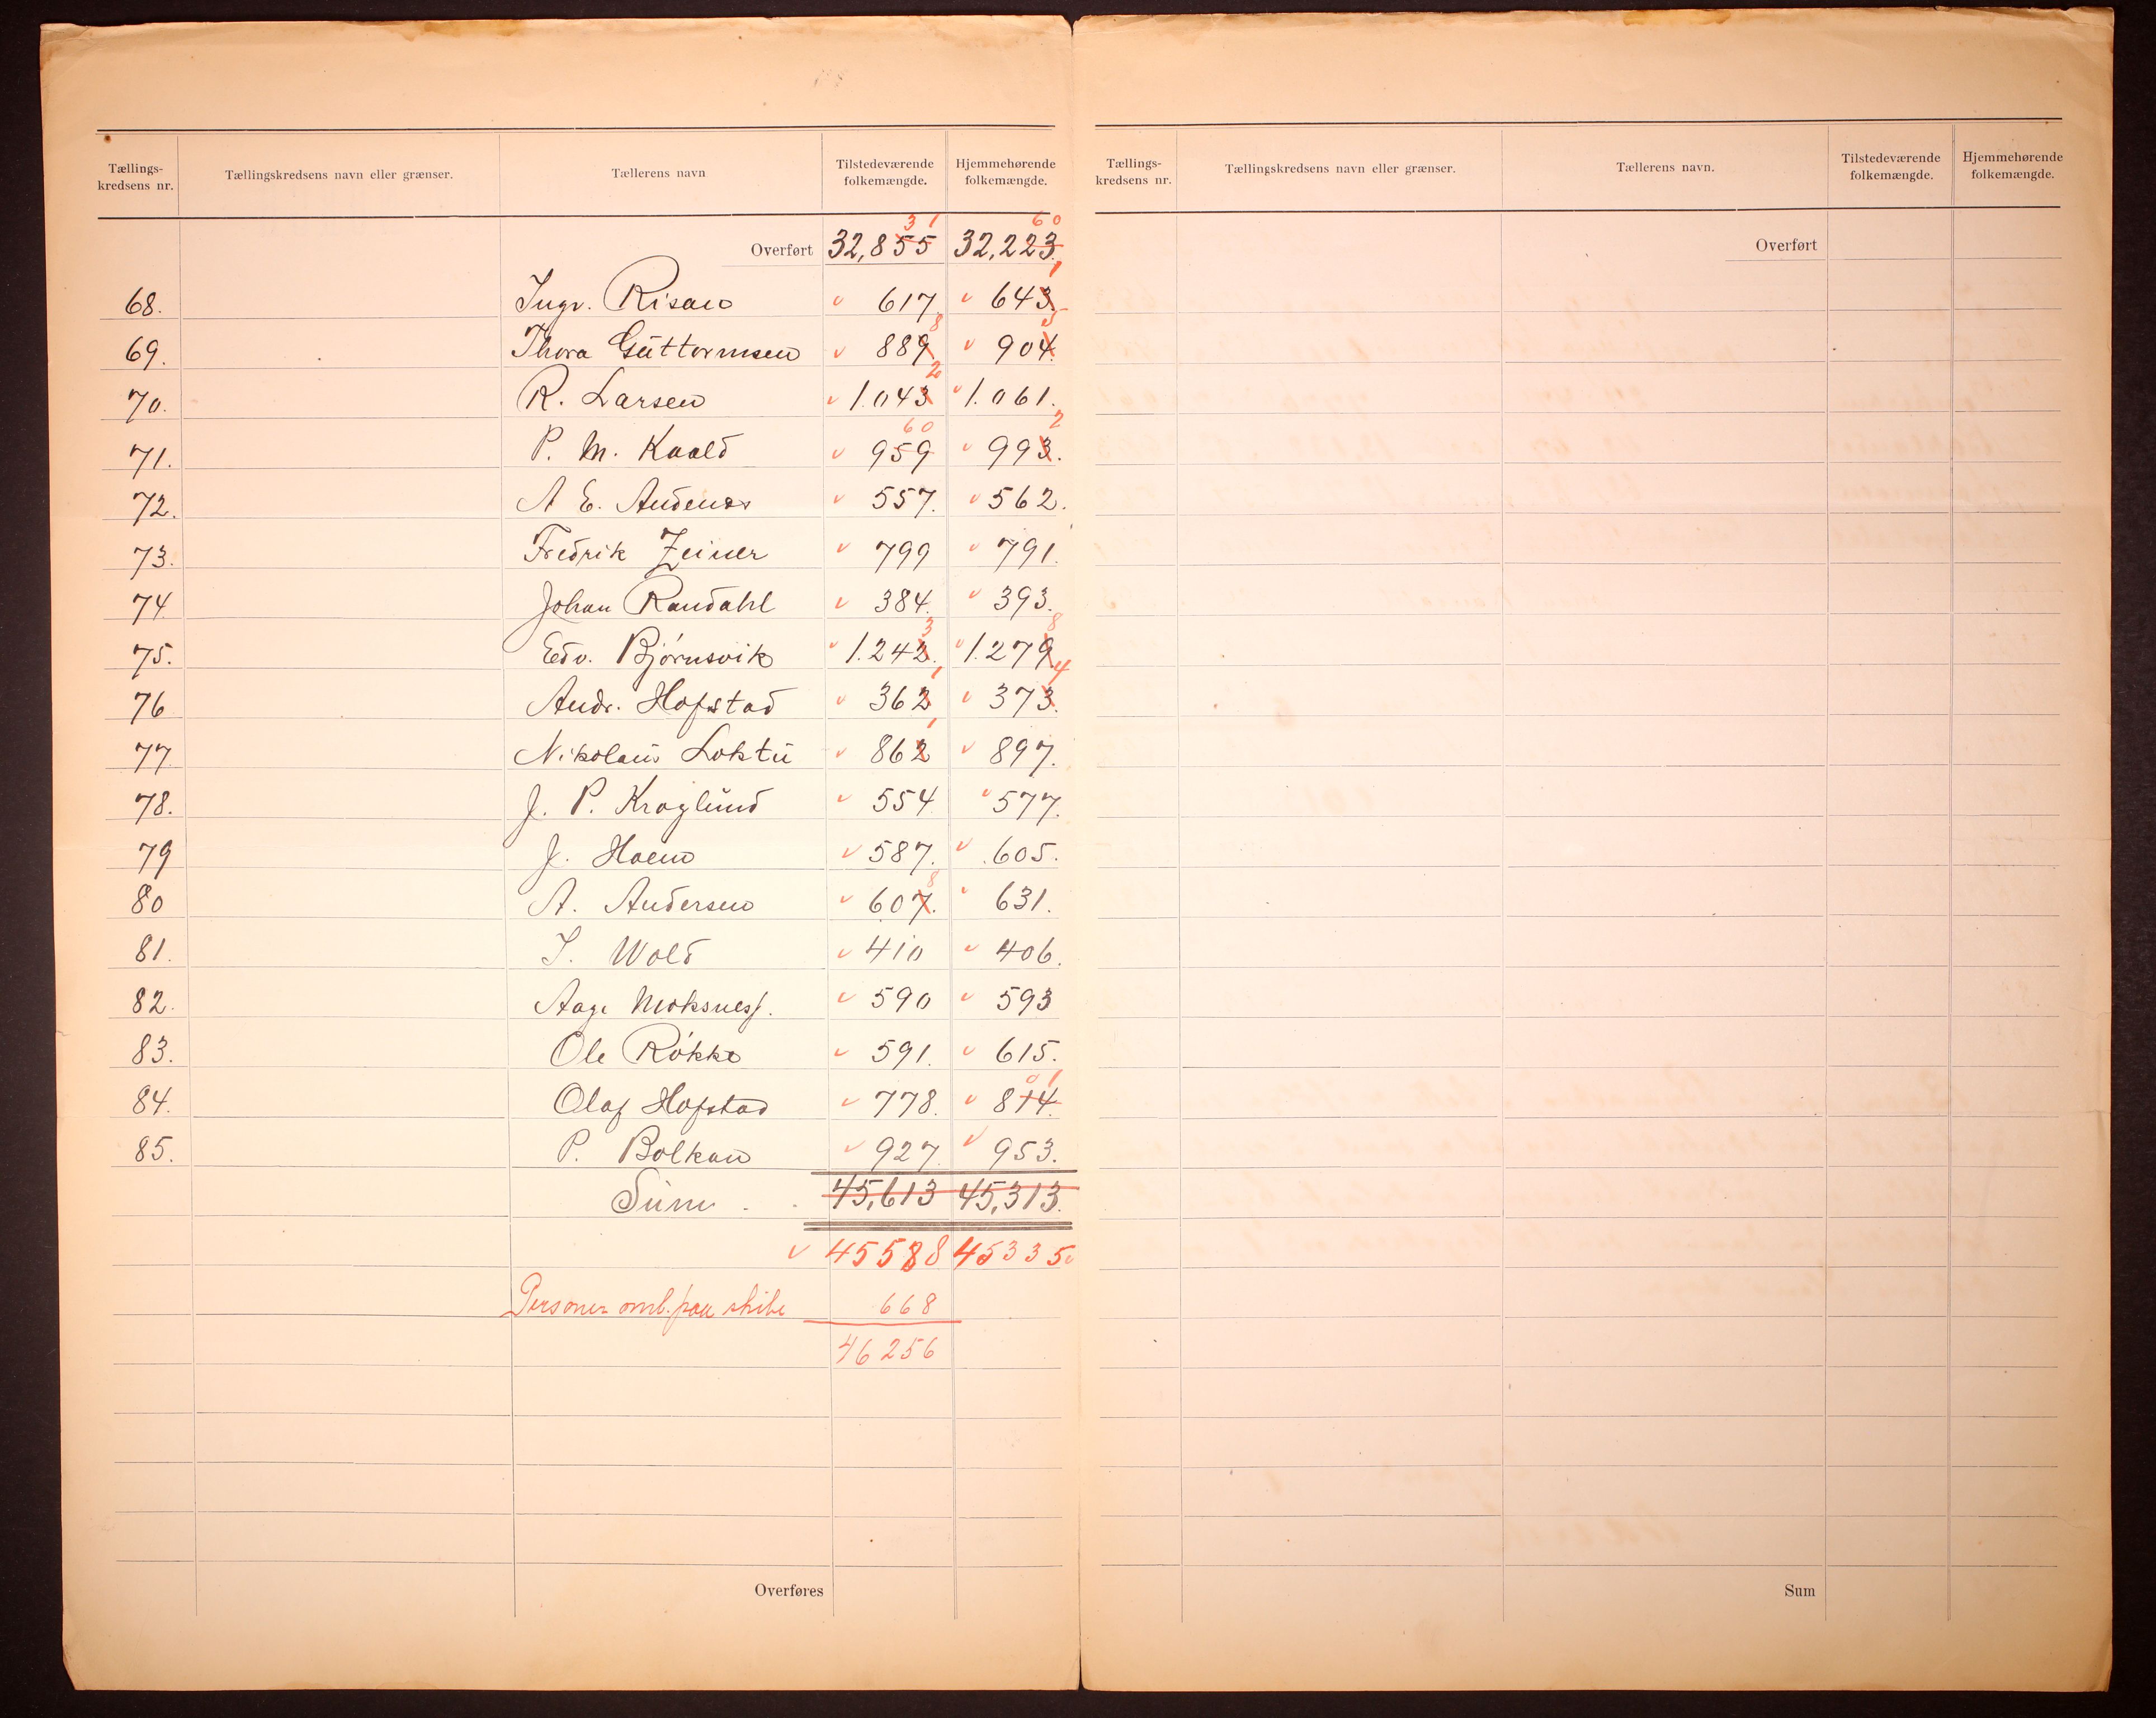 Tællings-kredsens nr. Tællingskredsens navn eller grænser. Tællerens navn Tilstedeværende folkemængde. Hjemmehørende folkemængde.
31 60
Overført 32,855 32,223.
1
68. Ingv. Risan v 617 v 643.
8 5
69. Thora Guttormsen v 889 v 904.
2
70. R. Larsen v 1.043 v 1.061.
60 2
71. P. M. Kaald v 959 v 993.
72. A E. Andenæs v 557. v 562.
73. Fredrik Zeiner v 799 v 791.
74 Johan Randahl v 384. v 393.
3 8
75. Edv. Bjørnsvik v 1.242. v 1.279.
1 4
76 Andr. Hofstad v 362 v 373.
1
77. Nikolaus Loktu v 862 v 897.
78. J. P. Kroglund v 554 v 577.
79 J. Hoem v 587. v 605.
8
80 A. Andersen v 607. v 631.
81. I. Wold v 410 v 406.
82. Aage Moksness. v 590 v 593
83. Ole Røkke v 591. v 615.
01
84. Olaf Hofstad v 778. v 814.
85. P. Bolkan v 927. v 953.
Sum . . 45,613 45,313.
v 45588 45335 v
Personer omb. paa skibe 668
46256
Overføres
Tællings-kredsens nr. Tællingskredsens navn eller grænser. Tællerens navn. Tilstedeværende folkemængde. Hjemmehørende folkemængde.
Overført
Sum